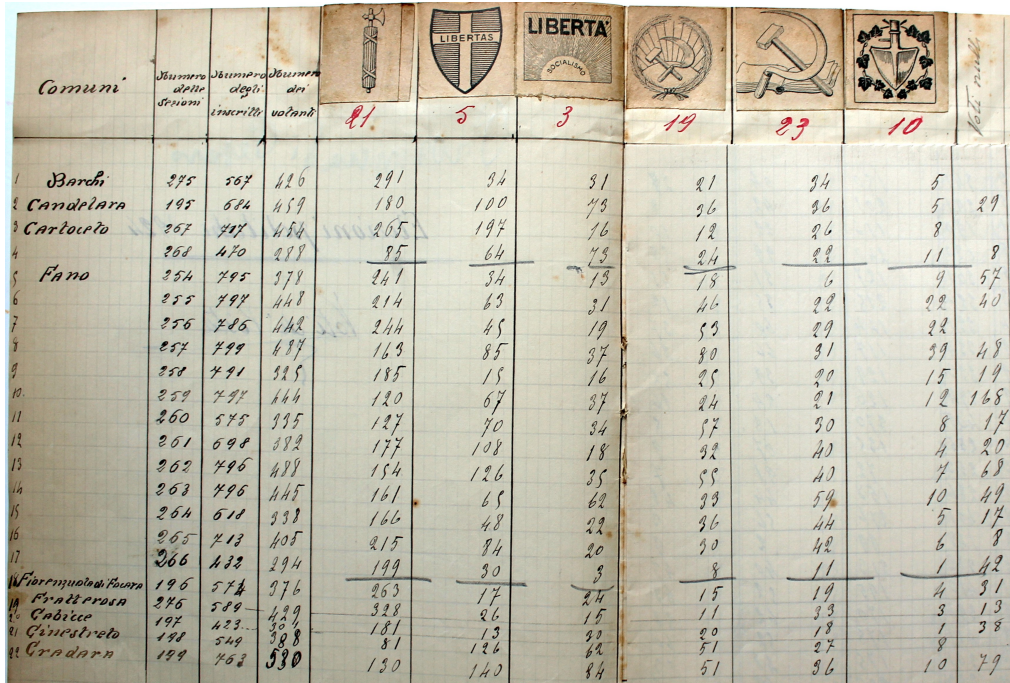 Comuni Numero delle sezioni Numero degli inscritti Numero dei votanti LIBERTAS LIBERTÀ SOCIALISMO Voti nulli
21 5 3 19 23 10
1 Barchi 275 567 426 291 34 31 21 34 5
2 Candelara 195 684 459 180 100 73 36 36 5 29
3 Cartoceto 267 454 265 197 16 12 26 8
4 268 470 288 85 64 73 24 22 11 8
5 Fano 254 795 378 241 34 13 18 6 9 57
6 255 797 448 214 63 31 46 22 22 40
7 256 786 442 244 45 19 53 29 22
8 257 799 487 163 85 37 80 31 39 48
9 258 791 325 185 15 16 25 20 15 19
10 259 797 444 120 67 37 24 21 12 168
11 260 575 335 127 70 34 57 30 8 17
12 261 698 382 177 108 18 32 40 4 20
13 262 796 488 154 126 35 55 40 7 68
14 263 796 445 161 65 62 33 59 10 49
15 264 618 338 166 48 22 36 44 5 17
16 265 713 405 215 84 20 30 42 6 8
17 266 432 294 199 30 3 8 11 1 42
18 Fiorenzuola di Focara 196 574 376 263 17 24 15 19 4 31
19 Fratterosa 276 589 429 328 26 15 11 33 3 13
20 Gabicce 197 423 181 13 30 20 18 1 38
21 Ginestreto 198 549 388 81 126 62 51 27 8
22 Gradara 199 763 530 130 140 84 51 36 10 79